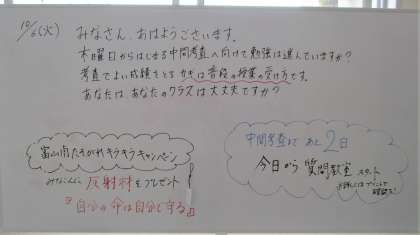 10/6(火) みなさん、おはようございます。
木曜日からはじまる中間考査へ向けて勉強は進んでいますか?
考査でよい成績をとるカギは普段の授業の受け方です。
あなたは、あなたのクラスは大丈夫ですか?
富山県たそがれキラキラキャンペーン
みなさんに 反射材をプレゼント
『自分の命は自分で守る』
中間考査まで あと2日
今日から 質問教室 スタート